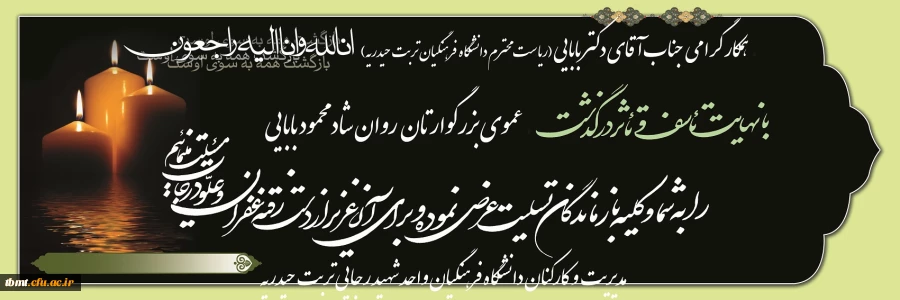 انالله وانا الیه راجعون
بازگشت همه به سوی اوست
همکار گرامی جناب آقای دکتر بابایی (ریاست محترم دانشگاه فرهنگیان تربت حیدریه)
با نهایت تأسف و تأثر درگذشت عموی بزرگوارتان روان شاد محمود بابایی
را به شما و کلیه بازماندگان تسلیت عرض نموده و برای آن عزیز از دست رفته غفران و علو درجات مسئلت می‌نماییم
مدیریت و کارکنان دانشگاه فرهنگیان واحد شهید رجایی تربت حیدریه
tbmt.cfu.ac.ir